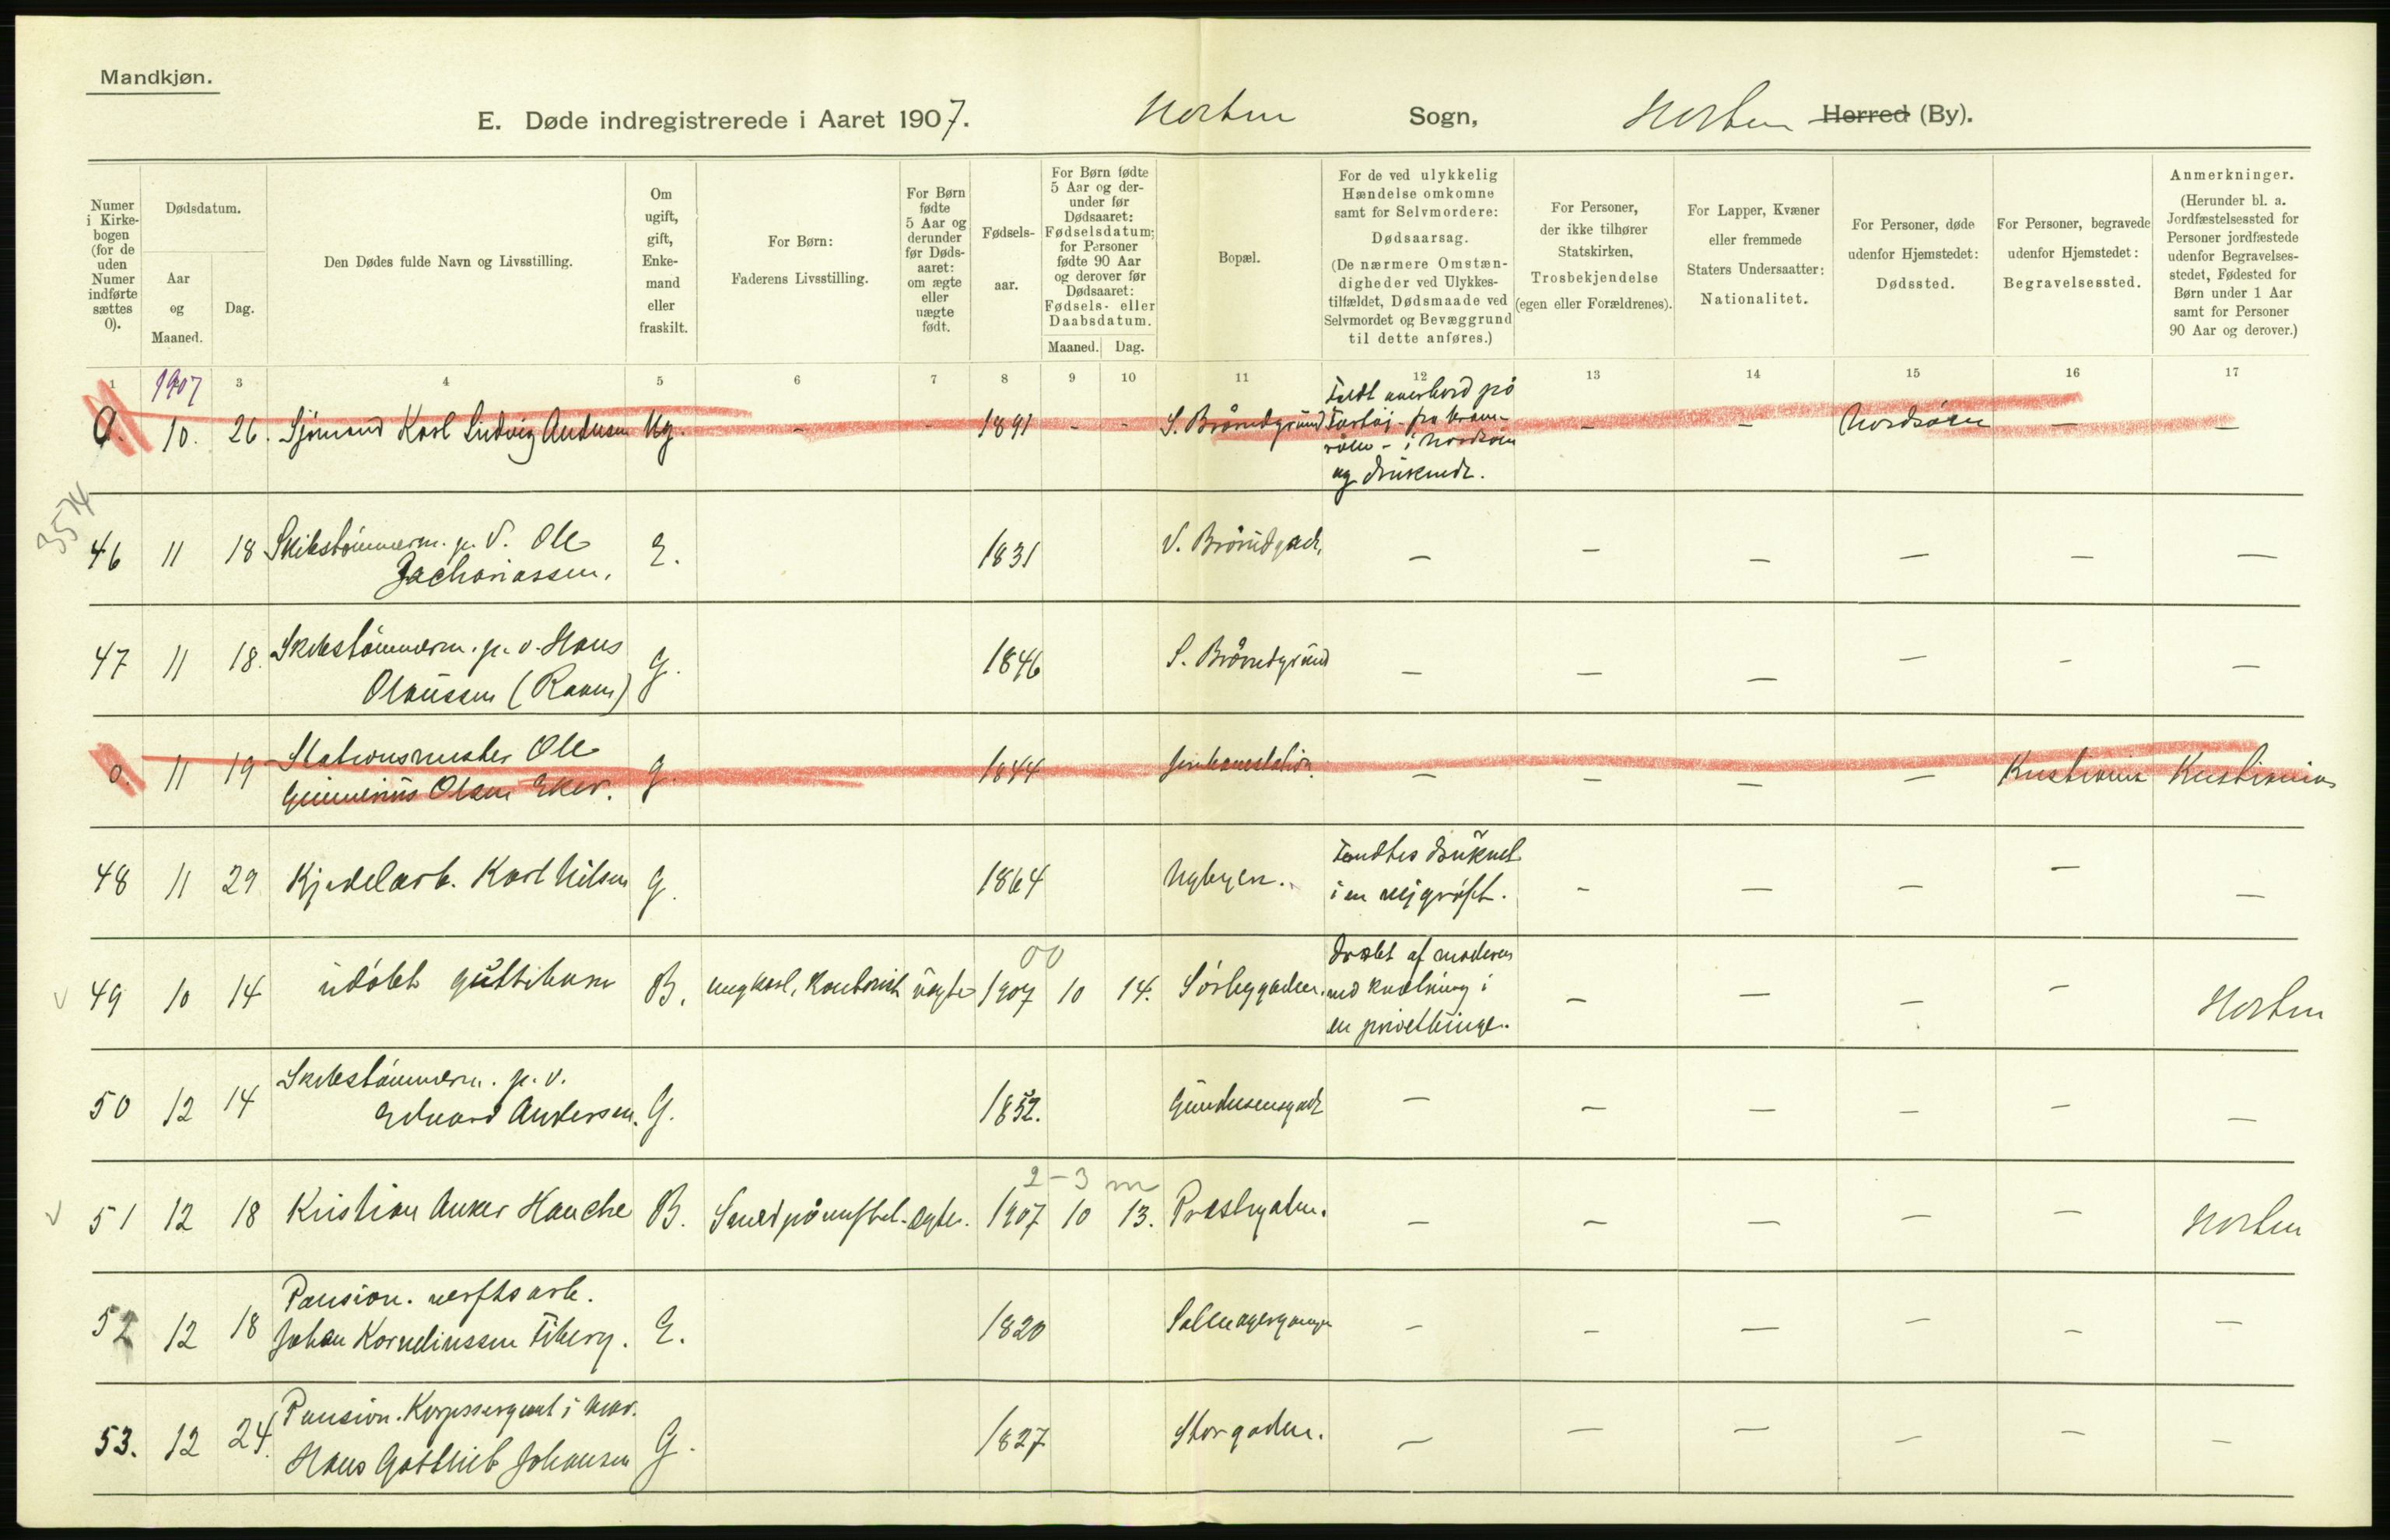 Mandkjøn.
E. Døde indregistrerede i Aaret 1907. Horten Sogn, Horten Herred (By).
Numer i Kirkebogen (for de uden Numer indførte sættes 0).
Dødsdatum.
Aar og Maaned.
Dag.
Den Dødes fulde Navn og Livsstilling.
Om ugift, gift, Enkemand eller fraskilt.
For Børn: Faderens Livsstilling.
For Børn fødte 5 Aar og derunder før Dødsaaret: om ægte eller uægte født.
Fødselsaar.
For Børn fødte 5 Aar og derunder før Dødsaaret: Fødselsdatum; for Personer fødte 90 Aar og derover før Dødsaaret: Fødsels- eller Daabsdatum.
Maaned. Dag.
Bopæl.
For de ved ulykkelig Hændelse omkomne samt for Selvmordere: Dødsaarsag. (De nærmere Omstændigheder ved Ulykkestilfældet, Dødsmaade ved Selvmordet og Bevæggrund til dette anføres.)
For Personer, der ikke tilhører Statskirken, Trosbekjendelse (egen eller Forældrenes).
For Lapper, Kvæner eller fremmede Staters Undersaatter: Nationalitet.
For Personer, døde udenfor Hjemstedet: Dødssted.
For Personer, begravede udenfor Hjemstedet: Begravelsessted.
Anmerkninger. (Herunder bl. a. Jordfæstelsessted for Personer jordfæstede udenfor Begravelsesstedet, Fødested for Børn under 1 Aar samt for Personer 90 Aar og derover.)
1 1907 3 4 5 6 7 8 9 10 11 12 13 14 15 16 17
0. 10. 26. Sjømand Karl Ludvig Andersen Ug. - - 1891 - - S. Brårudgrund Faldt overbord på Fartøj - i Nordsøen og druknede. - - Nordsøen - -
3574
46 11 18 Skibstømmerm. p. V. Ole Zachariassen. E. 1831 V. Brårudgade. - - - - - -
47 11 18. Skibstømmerm. p. v. Hans Olaussen (Raaen) G. 1846 S. Brårudgrund - - - - - -
0. 11 19 Stationsmester Ole Gunnerius Olsen Eker. G. 1844 Jernbanestation. - - - - Kristiania Kristiania
48 11 29 Kjedelarb. Karl Nilsen G. 1864 Nybyen. Fandtes druknet i en vejgrøft. - - - - -
49 10 14 udøbt guttebarn B. ungkarl, Kontorist uægte 1907 00 10 14. Sørbygaden. Dræbt af moderen ved kvælning i en privetbinge. - - - - Horten
50 12 14 Skibstømmerm. p. v. Edvard Andersen. G. 1852. Gundersensgade - - - - - -
51 12 18 Kristian Anker Hauche B. Smed på verftet. ægte. 1907 2-3 m 10 13. Prestegaden. - - - - - Horten
52 12 18 Pension. verftsarb. Johan Korneliussen Fiberg. E. 1820 - - - - - -
53. 12 24. Pension. Korpssergeant i mar. Hans Gottlieb Johansen G. 1827 Storgaden. - - - - - -